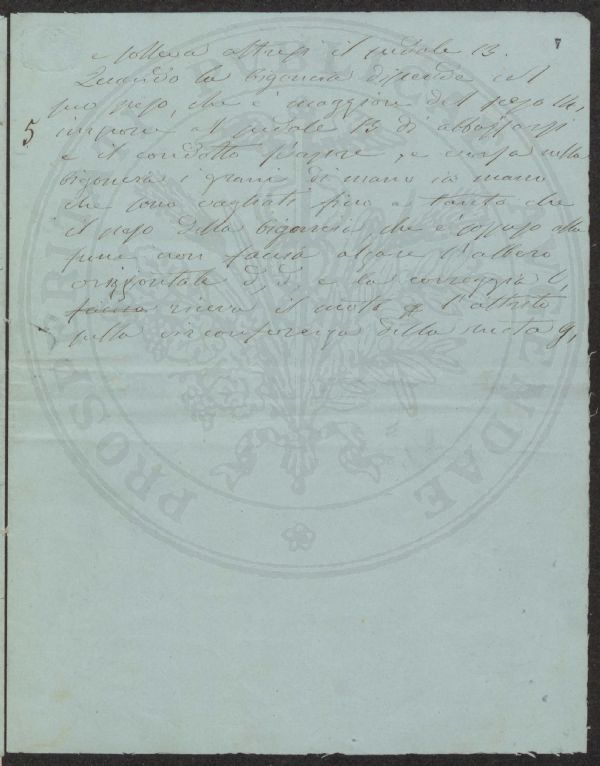 7
e solleva altresì il pedale B.
Quando la bigoncia discende col
suo peso, che è maggiore del peso
5
impone al pedale B di abbassarsi
e il condotto s'apre, e cade nella
bigoncia i grani di mano in mano
che sono vagliati fino a tanto che
il peso della bigoncia, che è appeso alla
fune non faccia alzare l'albero
orizzontale d, d, e la correggia l,
riceva il moto l'attrito
sulla circonferenza della ruota g,
PROSPERITATI PUBLICAE AUGENDAE